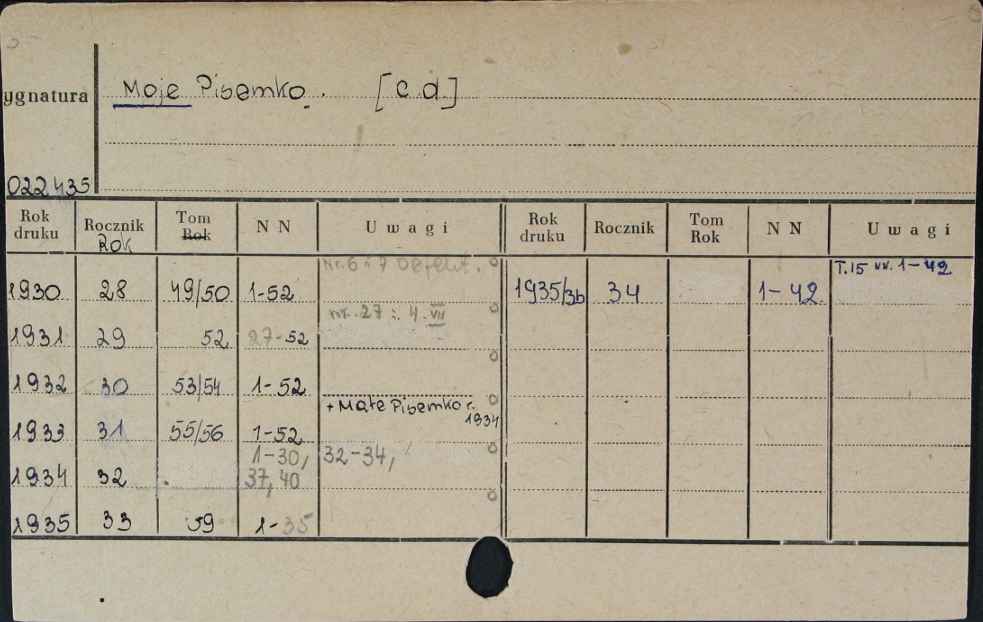 Moje Pisemko. [c.d]
ygnatura
022435
Rok druku Rocznik Rok Tom Rok N N Uwagi Rok druku Rocznik Tom Rok N N Uwagi
Nr. 6 i 7 Defekt. T.15 nr. 1-42
1930 28 49/50 1-52 1935/36 34 1-42
nr. 27 : 4. VII
1931 29 52 27-52
1932 30 53/54 1-52
+ Małe Pisemko r. 1934
1933 31 55/56 1-52
1-30, 32-34,
1934 32 37, 40
1935 33 59 1-35